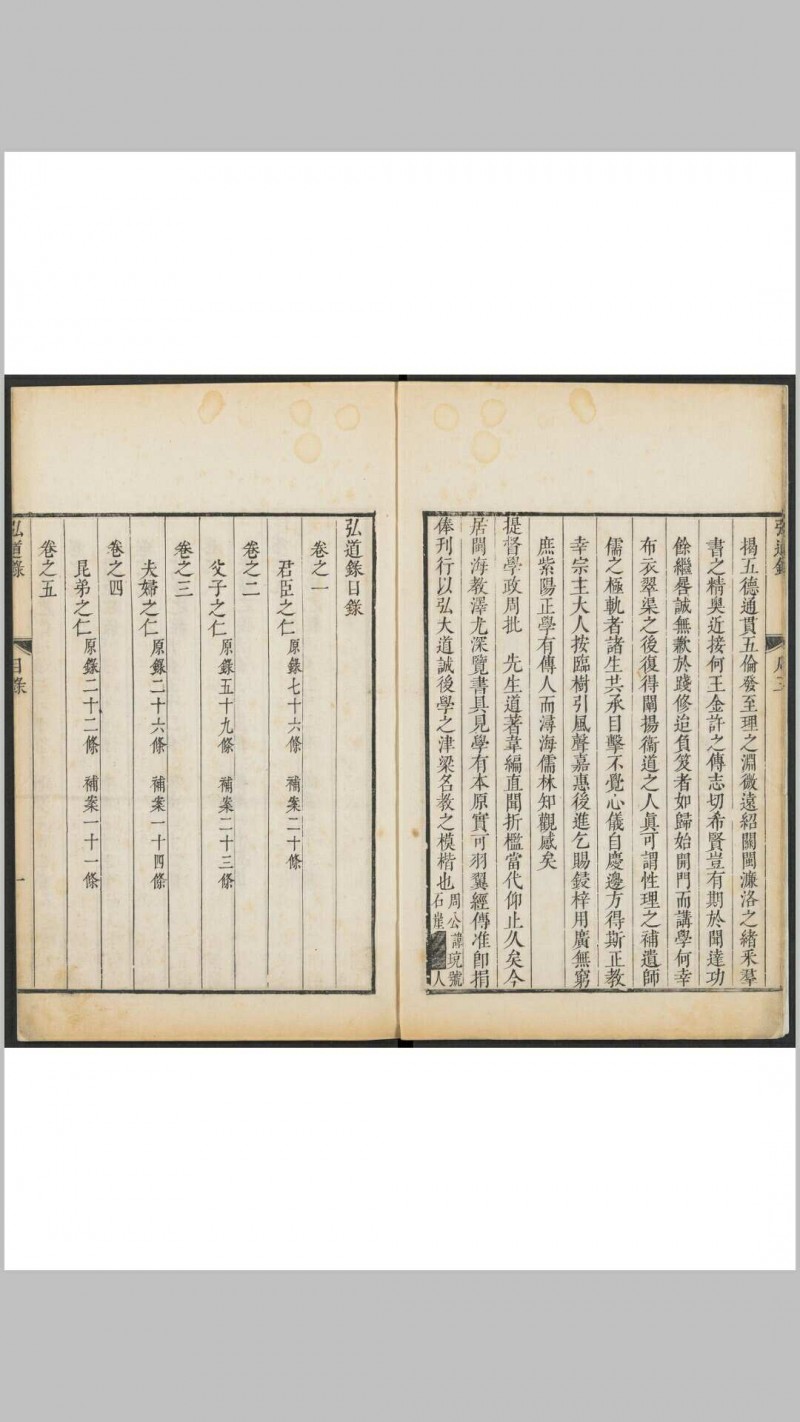 揭五德通貫五倫發至理之淵微遠紹關閩濂洛之緒采羣
書之精奥近接何王金許之傳志切希賢豈有期於聞達功
餘繼晷誠無歉於踐修追負笈者如歸始開門而講學何幸
布衣翠渠之後復得闡揚衞道之人眞可謂性理之補遺師
儒之極軌者諸生共承目擊不覺心儀自慶邊方得斯正教
幸宗主大人按臨樹引風聲嘉惠後進乞賜鋟梓用廣無窮
庶紫陽正學有傳人而潯海儒林知觀感矣
提督學政周批 先生道著韋編直聞折檻當代仰止久矣今
居閩海教澤尤深覽書具見學有本原實可羽翼經傳准卽捐
俸刊行以弘大道誠後學之津梁名教之模楷也
周公諱琉號
石崖 人
弘道錄目錄
卷之一
君臣之仁 原錄七十六條 補案二十條
卷之二
父子之仁 原錄五十九條 補案二十三條
卷之三
夫婦之仁 原錄二十六條 補案一十四條
卷之四
昆弟之仁 原錄二十二條 補案一十一條
卷之五
弘道錄 目錄 一